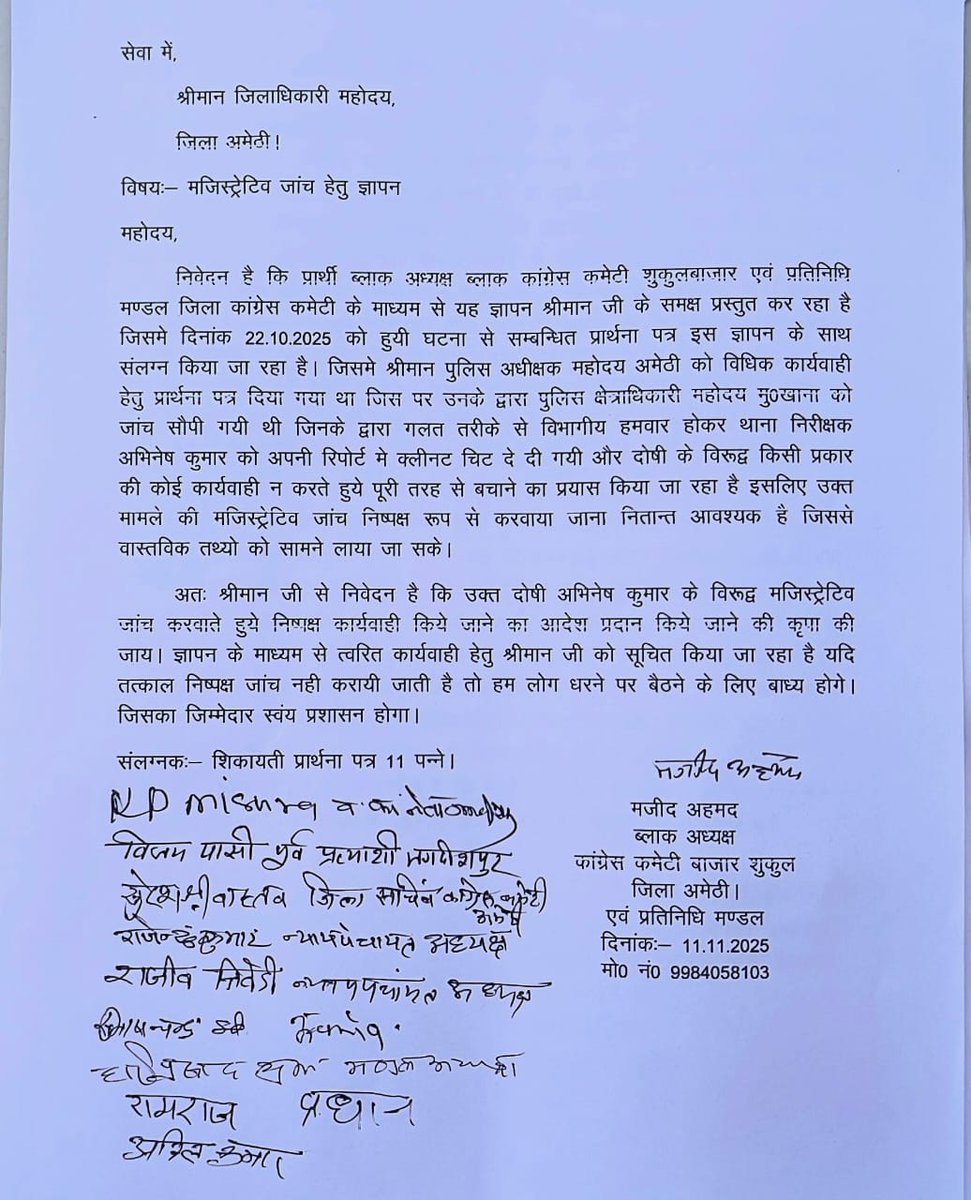 सेवा में,
श्रीमान जिलाधिकारी महोदय,
जिला अमेठी!
विषयः– मजिस्ट्रेटिव जांच हेतु ज्ञापन
महोदय,
निवेदन है कि प्रार्थी ब्लाक अध्यक्ष ब्लाक कांग्रेस कमेटी शुकुलबाजार एवं प्रतिनिधि
मण्डल जिला कांग्रेस कमेटी के माध्यम से यह ज्ञापन श्रीमान जी के समक्ष प्रस्तुत कर रहा है
जिसमे दिनांक 22.10.2025 को हुयी घटना से सम्बन्धित प्रार्थना पत्र इस ज्ञापन के साथ
संलग्न किया जा रहा है। जिसमे श्रीमान पुलिस अधीक्षक महोदय अमेठी को विधिक कार्यवाही
हेतु प्रार्थना पत्र दिया गया था जिस पर उनके द्वारा पुलिस क्षेत्राधिकारी महोदय मु0खाना को
जांच सौपी गयी थी जिनके द्वारा गलत तरीके से विभागीय हमवार होकर थाना निरीक्षक
अभिनेष कुमार को अपनी रिपोर्ट मे क्लीनट चिट दे दी गयी और दोषी के विरूद्व किसी प्रकार
की कोई कार्यवाही न करते हुये पूरी तरह से बचाने का प्रयास किया जा रहा है इसलिए उक्त
मामले की मजिस्ट्रेटिव जांच निष्पक्ष रूप से करवाया जाना नितान्त आवश्यक है जिससे
वास्तविक तथ्यो को सामने लाया जा सके।
अतः श्रीमान जी से निवेदन है कि उक्त दोषी अभिनेष कुमार के विरूद्व मजिस्ट्रेटिव
जांच करवाते हुये निष्पक्ष कार्यवाही किये जाने का आदेश प्रदान किये जाने की कृपा की
जाय। ज्ञापन के माध्यम से त्वरित कार्यवाही हेतु श्रीमान जी को सूचित किया जा रहा है यदि
तत्काल निष्पक्ष जांच नही करायी जाती है तो हम लोग धरने पर बैठने के लिए बाध्य होगे।
जिसका जिम्मेदार स्वंय प्रशासन होगा।
संलग्नकः– शिकायती प्रार्थना पत्र 11 पन्ने।
मजीद अहमद
मजीद अहमद
ब्लाक अध्यक्ष
कांग्रेस कमेटी बाजार शुकुल
जिला अमेठी।
एवं प्रतिनिधि मण्डल
दिनांकः– 11.11.2025
मो0 नं0 9984058103
विजय पासी पूर्व प्रत्याशी जगदीशपुर
सुरेश श्रीवास्तव जिला सचिव कांग्रेस कमेटी
अमेठी
राजेन्द्र कुमार न्यायपंचायत अध्यक्ष
राजीव त्रिवेदी न्यायपंचायत अध्यक्ष
रामराज प्रधान